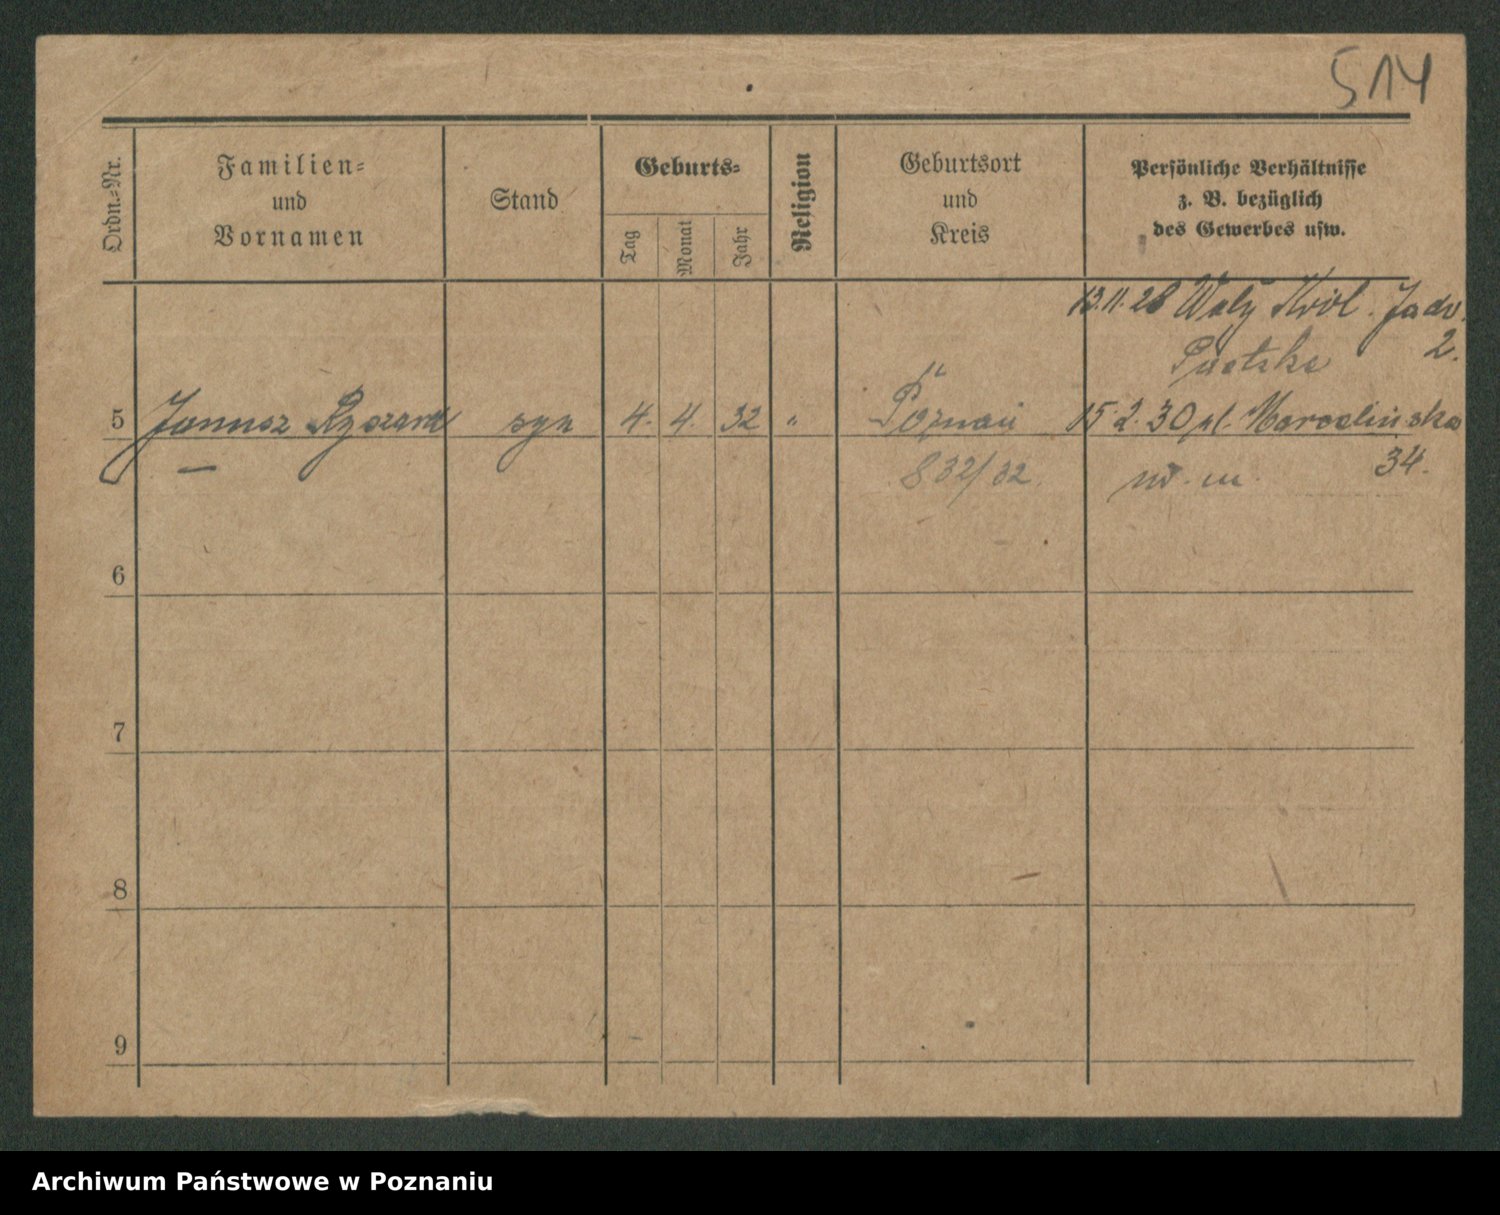 514
Ordn.-Nr.
Familien-
und
Vornamen
Stand
Geburts-
Tag
Monat
Jahr
Religion
Geburtsort
und
Kreis
Persönliche Verhältnisse
z. B. bezüglich
des Gewerbes usw.
13.11.28 Wały Król. Jadw.
2.
5 Janusz Ryszard syn 4. 4. 32 " Poznań 15.2.30 pl. Marcelińska
34.
832/32.
6
7
8
9
Archiwum Państwowe w Poznaniu